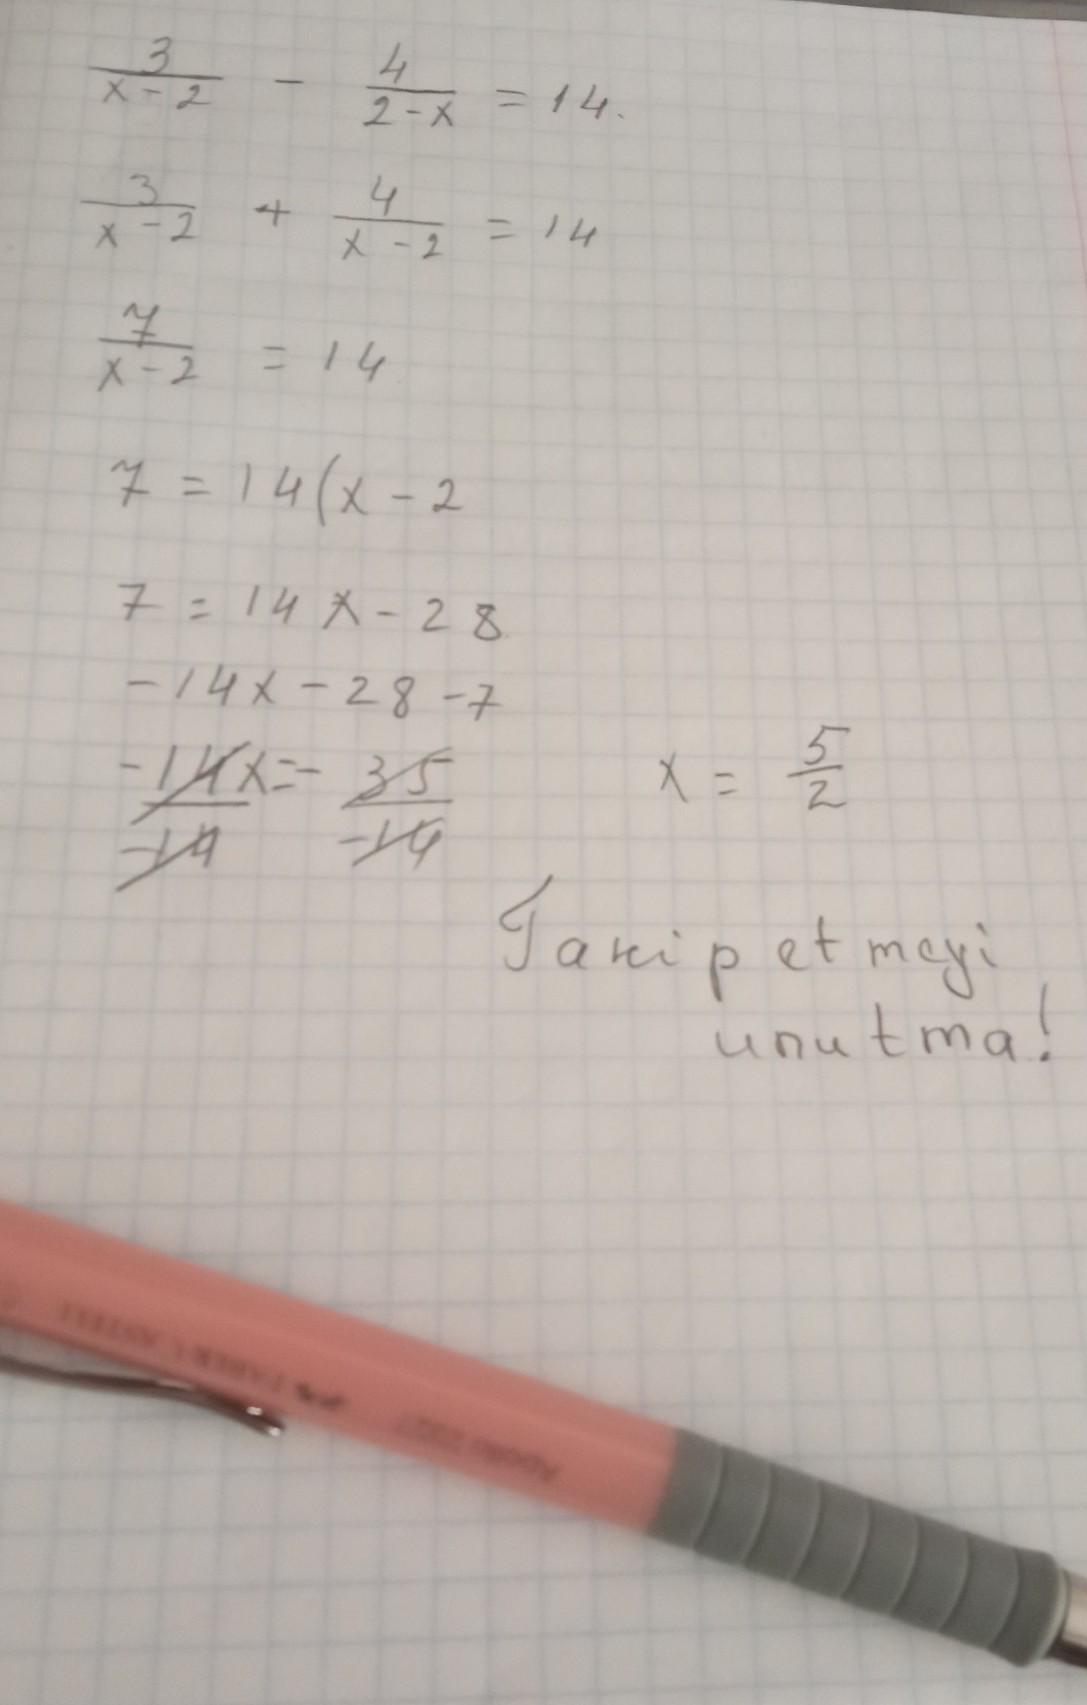 3/(x-2) - 4/(2-x) = 14.
3/(x-2) + 4/(x-2) = 14
7/(x-2) = 14
7 = 14(x-2
7 = 14x-28
-14x-28-7
-14x/-14 =- 35/-14
x = 5/2
Takip etmeyi
unutma!
FABER-CASTELL
Apollo